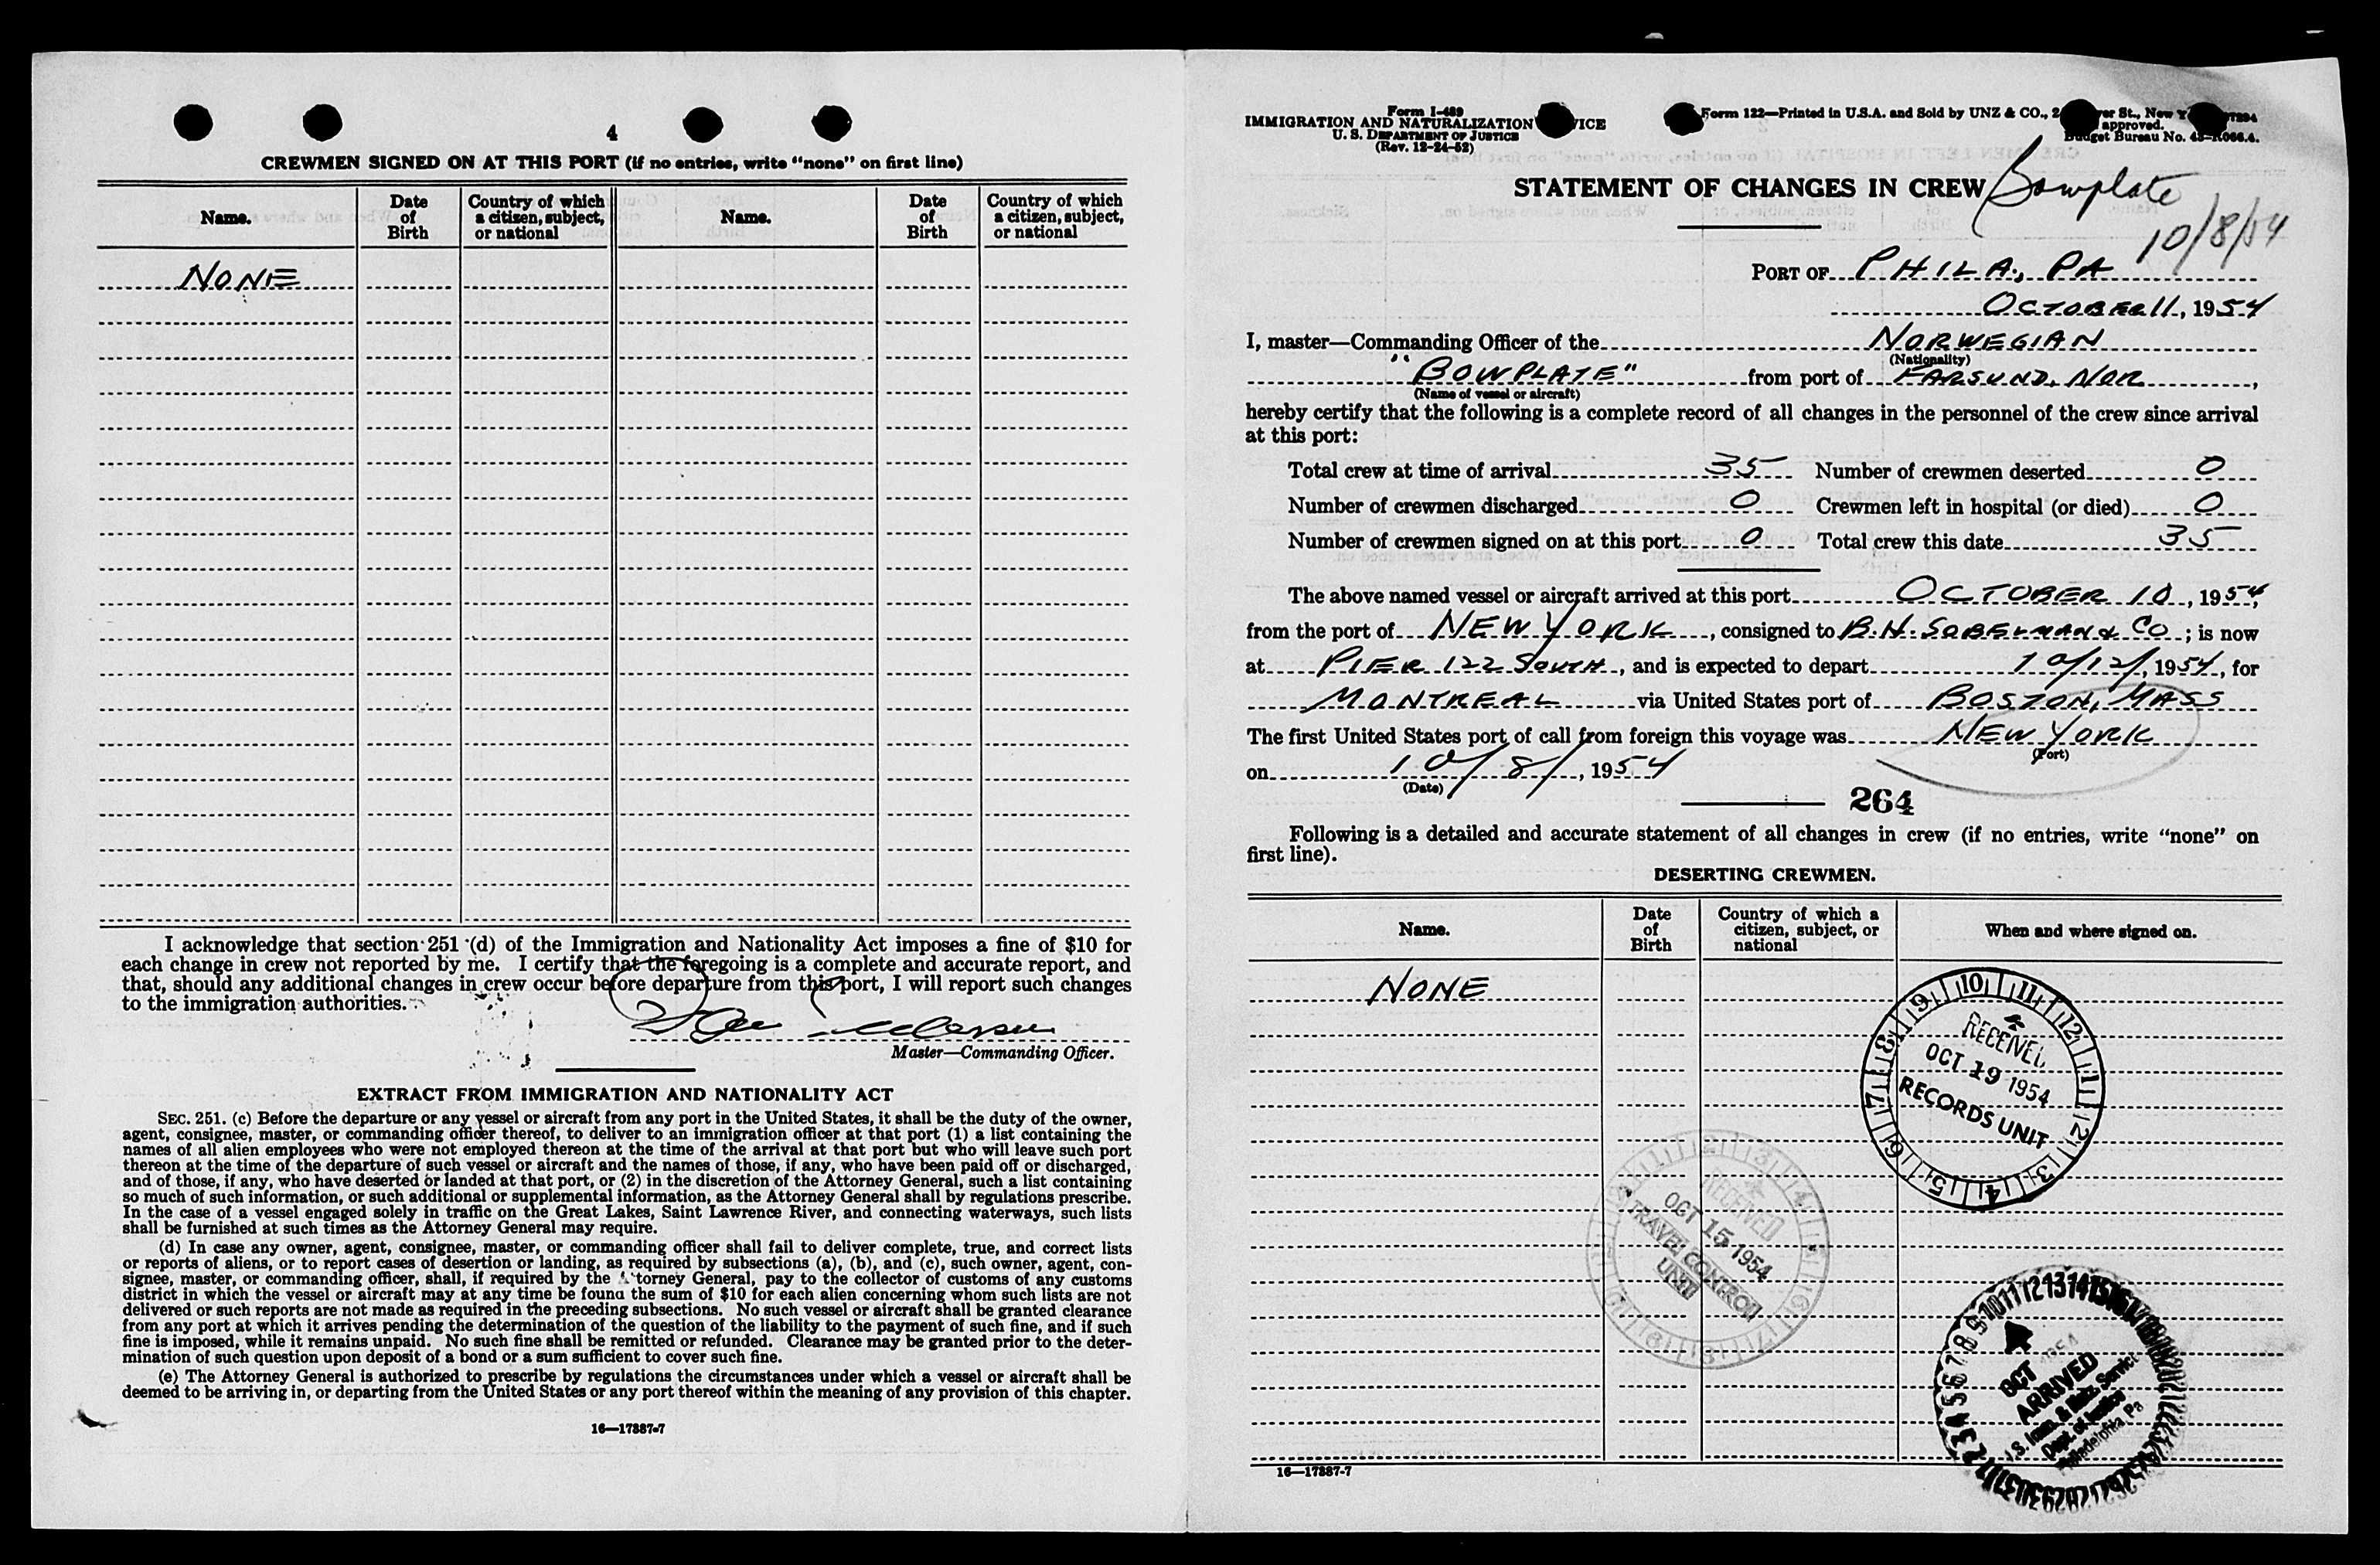 4
CREWMEN SIGNED ON AT THIS PORT (if no entries, write "none" on first line)
Name. Date of Birth Country of which a citizen, subject, or national Name. Date of Birth Country of which a citizen, subject, or national
NONE
I acknowledge that section 251 (d) of the Immigration and Nationality Act imposes a fine of $10 for
each change in crew not reported by me. I certify that the foregoing is a complete and accurate report, and
that, should any additional changes in crew occur before departure from this port, I will report such changes
to the immigration authorities.
Master—Commanding Officer.
EXTRACT FROM IMMIGRATION AND NATIONALITY ACT
SEC. 251. (c) Before the departure or any vessel or aircraft from any port in the United States, it shall be the duty of the owner,
agent, consignee, master, or commanding officer thereof, to deliver to an immigration officer at that port (1) a list containing the
names of all alien employees who were not employed thereon at the time of the arrival at that port but who will leave such port
thereon at the time of the departure of such vessel or aircraft and the names of those, if any, who have been paid off or discharged,
and of those, if any, who have deserted or landed at that port, or (2) in the discretion of the Attorney General, such a list containing
so much of such information, or such additional or supplemental information, as the Attorney General shall by regulations prescribe.
In the case of a vessel engaged solely in traffic on the Great Lakes, Saint Lawrence River, and connecting waterways, such lists
shall be furnished at such times as the Attorney General may require.
(d) In case any owner, agent, consignee, master, or commanding officer shall fail to deliver complete, true, and correct lists
or reports of aliens, or to report cases of desertion or landing, as required by subsections (a), (b), and (c), such owner, agent, con-
signee, master, or commanding officer, shall, if required by the Attorney General, pay to the collector of customs of any customs
district in which the vessel or aircraft may at any time be found the sum of $10 for each alien concerning whom such lists are not
delivered or such reports are not made as required in the preceding subsections. No such vessel or aircraft shall be granted clearance
from any port at which it arrives pending the determination of the question of the liability to the payment of such fine, and if such
fine is imposed, while it remains unpaid. No such fine shall be remitted or refunded. Clearance may be granted prior to the deter-
mination of such question upon deposit of a bond or a sum sufficient to cover such fine.
(e) The Attorney General is authorized to prescribe by regulations the circumstances under which a vessel or aircraft shall be
deemed to be arriving in, or departing from the United States or any port thereof within the meaning of any provision of this chapter.
16—17887-7
Form I-489
IMMIGRATION AND NATURALIZATION
U. S. DEPARTMENT OF JUSTICE
(Rev. 12-24-52)
Form 122—Printed in U.S.A. and Sold by UNZ & CO., St., New
approved.
Bureau No.
STATEMENT OF CHANGES IN CREW Bowplate
10/8/54
PORT OF PHILA., PA
OCTOBER 11, 1954
I, master—Commanding Officer of the NORWEGIAN
(Nationality)
"BOWPLATE" from port of FARSUND, NOR,
(Name of vessel or aircraft)
hereby certify that the following is a complete record of all changes in the personnel of the crew since arrival
at this port:
Total crew at time of arrival 35 Number of crewmen deserted 0
Number of crewmen discharged 0 Crewmen left in hospital (or died) 0
Number of crewmen signed on at this port 0 Total crew this date 35
The above named vessel or aircraft arrived at this port OCTOBER 10, 1954,
from the port of NEW YORK, consigned to B.H. SOBELMAN & CO; is now
at PIER 122 SOUTH, and is expected to depart 10/12/, 1954, for
MONTREAL via United States port of BOSTON, MASS
The first United States port of call from foreign this voyage was NEW YORK
(Port)
on 10/8/, 1954
(Date)
264
Following is a detailed and accurate statement of all changes in crew (if no entries, write "none" on
first line).
DESERTING CREWMEN.
Name. Date of Birth Country of which a citizen, subject, or national When and where signed on.
NONE
9 10 11 12 1 2 3 4 5 6 7 8
RECEIVED
OCT 19 1954
RECORDS UNIT
RECEIVED
OCT 15 1954
TRAVEL CONTROL
UNIT
OCT 1954
ARRIVED
U.S. Imm. & Natz. Service
Dept. of Justice
Philadelphia, Pa
16—17887-7